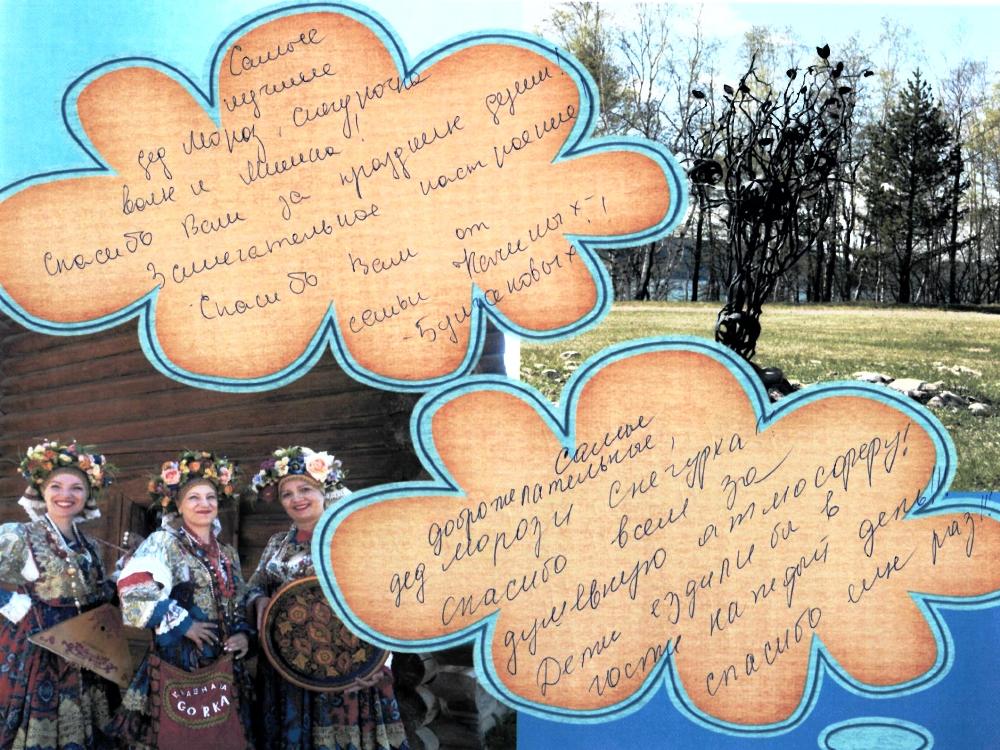 Самые
лучшие
дед Мороз, Снегурочка
волк и Мишка!
Спасибо Вам за праздник души!
Замечательное настроение
Спасибо Вам от
семьи
самые
доброжелательные,
дед мороз и снегурка!
спасибо всем за
душевную атмосферу!
Дети ездили бы в
гости каждый день!!
спасибо еще раз!!!
GORKA